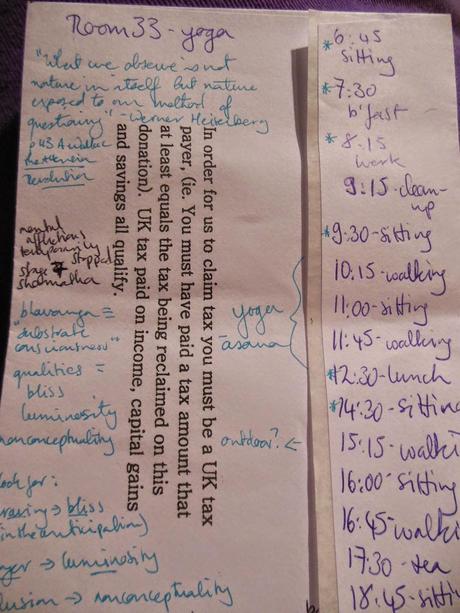 Room 33 - yoga
"What we observe is not
nature in itself but nature
exposed to our method of
questioning" - Werner Heisenberg
p 43 A
the
Revolution
mental
afflictions
temporarily
stopped
stage 7
shamatha
bhavanga =
"substrate
consciousness"
qualities =
bliss
luminosity
nonconceptuality
ook for:
raving → bliss
(in the anticipation)
nger → luminosity
lusion → nonconceptuality
In order for us to claim tax you must be a UK tax
payer, (ie. You must have paid a tax amount that
at least equals the tax being reclaimed on this
donation). UK tax paid on income, capital gains
and savings all qualify.
yoga
āsana
outdoor? ←
*6:45
sitting
*7:30
b'fast
*8.15
work
9:15-clean-
up
*9:30-sitting
10.15-walking
11:00-sitting
11:45-walking
*12:30-lunch
*14:30-sitting
15:15-walki
16:00-sitting
16:45-walki
17:30-tea
18:45-sitti